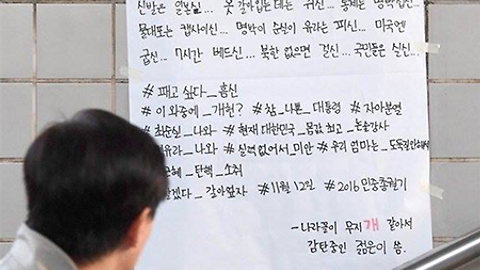 신발은 일보실... 옷 갈아입는데는 귀신... 통치는 병신...
물대포는 캡사이신... 명박이 순실이 유라는 피신... 미국엔
굽신... 7시간 베드신... 북한 없으면 걸신... 국민들은 실신...
#패고 싶다_흠신
#이 와중에_개헌? #참_나쁜_대통령 #자아분열
#최순실_나와 #현재 대한민국_몸값 최고_논술강사
유라_나와 #실력없어서_미안 #우리 엄마는_도둑질 안해서
혜_탄핵_소취
겠다_갈아엎자 #11월 12일 #2016 민중총궐기
-나라꼴이 무지개 같아서
감탄중인 젊은이 씀.